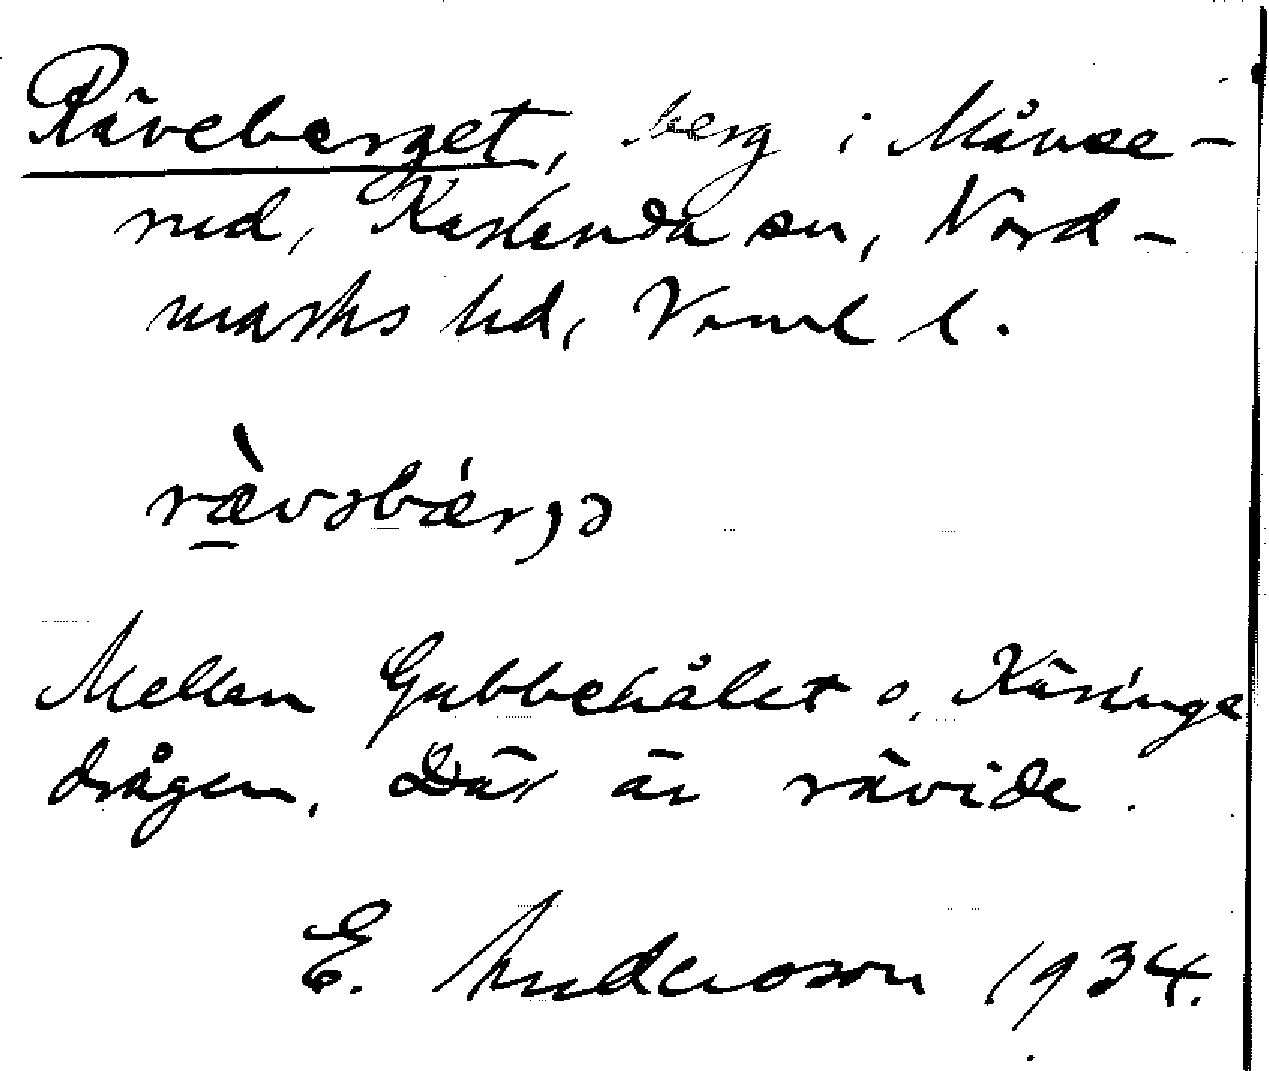 Räveberget, berg i Månse-
rud, Karlanda sn, Nord-
marks hd, Vrml l.
ræ̀vəbær̨ə
Mellan Gubbehålet o. Käringe
drågen. Där är rävide.
E. Andersson 1934.